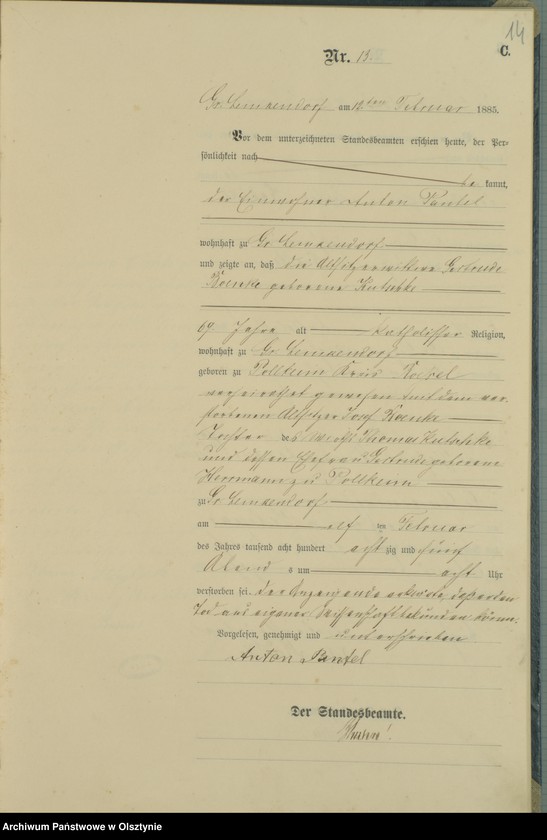 14
C.
Nr. 13.
Gr. Lemkendorf am 12ten Februar 1885.
Vor dem unterzeichneten Standesbeamten erschien heute, der Per-
sönlichkeit nach
be kannt,
der Einwohner Anton Pantel
wohnhaft zu Gr. Lemkendorf
und zeigte an, daß die Altsitzerwittwe Gertrude
geborene Kutschke
69 Jahre alt katholischer Religion,
wohnhaft zu Gr. Lemkendorf
geboren zu Pollkeim Kreis
verheirathet gewesen mit dem ver-
storbenen Altsitzer Josef
Tochter des Wirths Thomas Kutschke
und dessen Ehefrau Gertrude geborene
Herrmann zu Pollkeim
zu Gr. Lemkendorf
am elf ten Februar
des Jahres tausend acht hundert acht zig und fünf
Abend s um acht Uhr
verstorben sei. Der Anzeigende erklärte, daß er den
Tod aus eigener Wissenschaft bekunden könne.
Vorgelesen, genehmigt und unterschrieben
Anton Pantel
Der Standesbeamte.
Archiwum Państwowe w Olsztynie